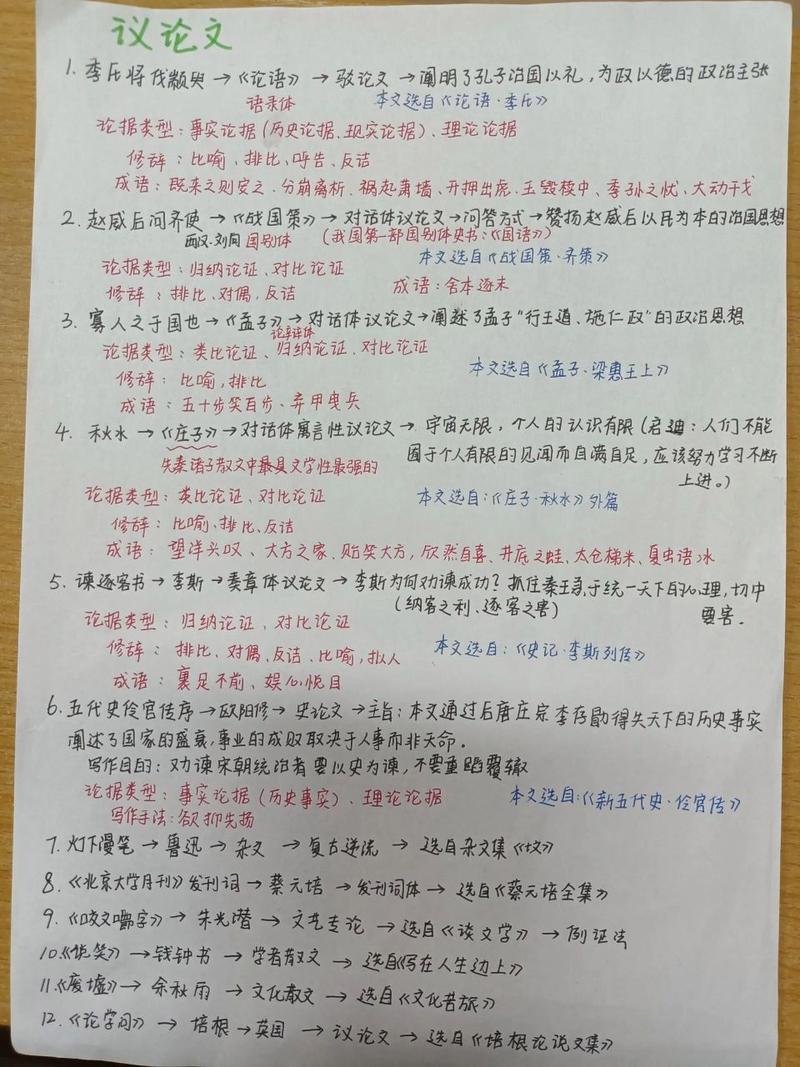 议论文
1. 季氏将伐颛臾→《论语》→驳论文→阐明了孔子治国以礼，为政以德的政治主张
语录体 本文选自《论语·季氏》
论据类型：事实论据（历史论据、现实论据）、理论论据
修辞：比喻、排比、呼告、反诘
成语：既来之则安之、分崩离析、祸起萧墙、开押出虎、玉毁椟中、季孙之忧、大动干戈
2. 赵威后问齐使→《战国策》→对话体议论文→问答方式→赞扬赵威后以民为本的治国思想
西汉·刘向 国别体 （我国第一部国别体史书：《国语》）
论据类型：归纳论证、对比论证 本文选自《战国策·齐策》
修辞：排比、对偶、反诘 成语：舍本逐末
3. 寡人之于国也→《孟子》→对话体议论文→阐述了孟子"行王道、施仁政"的政治思想
论辩体
论据类型：类比论证、归纳论证、对比论证
修辞：比喻，排比 本文选自《孟子·梁惠王上》
成语：五十步笑百步、弃甲曳兵
4. 秋水→《庄子》→对话体寓言性议论文→宇宙无限，个人的认识有限（启迪：人们不能
先秦诸子散文中最具文学性最强的 囿于个人有限的见闻而自满自足，应该努力学习不断
上进。）
论据类型：类比论证、对比论证 本文选自：《庄子·秋水》外篇
修辞：比喻、排比、反诘
成语：望洋兴叹、大方之家、贻笑大方，欣然自喜、井底之蛙、太仓稊米、夏虫语冰
5. 谏逐客书→李斯→奏章体议论文→李斯为何劝谏成功？抓住秦王急于统一天下的心理，切中
（纳客之利、逐客之害） 要害.
论据类型：归纳论证，对比论证
修辞：排比、对偶、反诘、比喻，拟人 本文选自：《史记·李斯列传》
成语：裹足不前、娱心悦目
6. 五代史伶官传序→欧阳修→史论文→主旨：本文通过后唐庄宗李存勖得失天下的历史事实
阐述了国家的盛衰，事业的成败取决于人事而非天命.
写作目的：劝谏宋朝统治者要以史为谏，不要重蹈覆辙
论据类型：事实论据（历史事实）、理论论据 本文选自：《新五代史·伶官传》
写作手法：欲抑先扬
7. 灯下漫笔→鲁迅→杂文→复古逆流→选自杂文集《坟》
8. 《北京大学月刊》发刊词→蔡元培→发刊词体→选自《蔡元培全集》
9. 《咬文嚼字》→朱光潜→文艺专论→选自《谈文学》→例证法
10.《说笑》→钱钟书→学者散文→选自《写在人生边上》
11.《废墟》→余秋雨→文化散文→选自《文化苦旅》
12. 《论学问》→培根→英国→议论文→选自《培根论说文集》